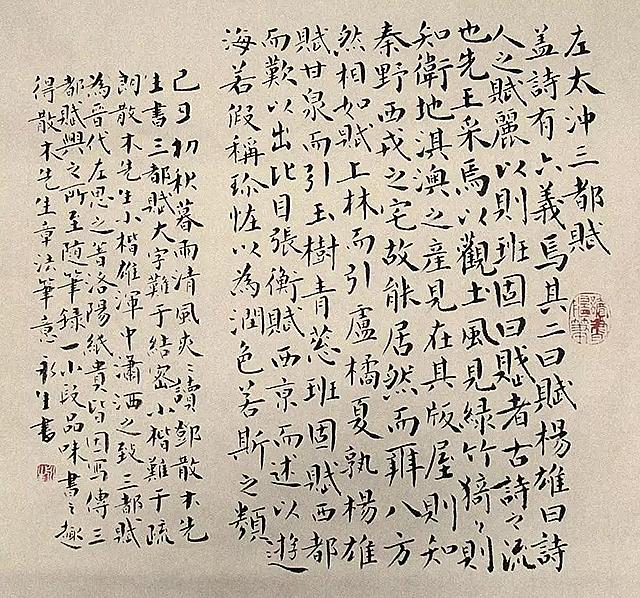 左太沖三都賦
蓋詩有六義焉其二曰賦楊雄曰詩
人之賦麗以則班固曰賦者古詩之流
也先王采焉以觀土風見緑竹猗〻則
知衛地淇澳之產見在其版屋則知
秦野西戎之宅故能居然而辨八方
然相如賦上林而引盧橘夏孰楊雄
賦甘泉而引玉樹青蔥班固賦西都
而歎以出比目張衡賦西京而述以遊
海若假稱珍怪以為潤色若斯之類
己丑初秋暮雨清風爽〻讀鄧散木先
生書三都賦大字難于結密小楷難于疏
朗散木先生小楷雄渾中瀟洒之致三都賦
為晉代左思之著洛陽紙貴皆因寫傳三
都賦興之所至随筆錄一小段品味書之趣
得散木先生章法筆意 永生書